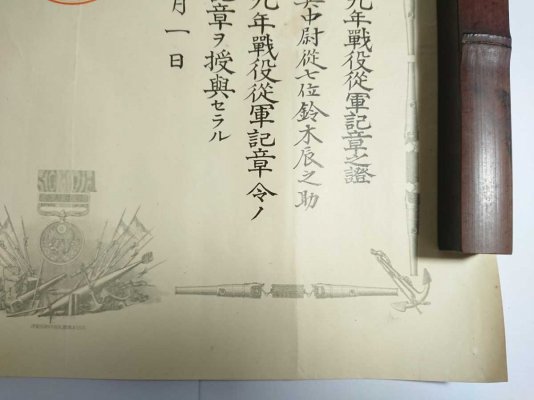 九年戰役從軍記章之證
中尉從七位鈴木辰之助
九年戰役從軍記章令ノ
記章ヲ授與セラル
月一日